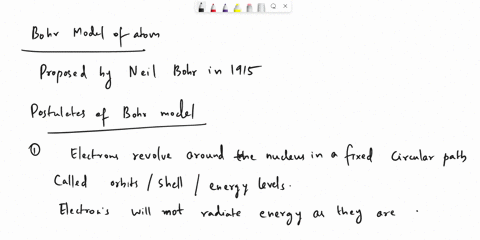 Bohr Model of atom
Proposed by Neil Bohr in 1915
Postulates of Bohr model
① Electrons revolve around the nucleus in a fixed circular path
Called orbits / shell / energy levels.
Electrons will not radiate energy as they are .